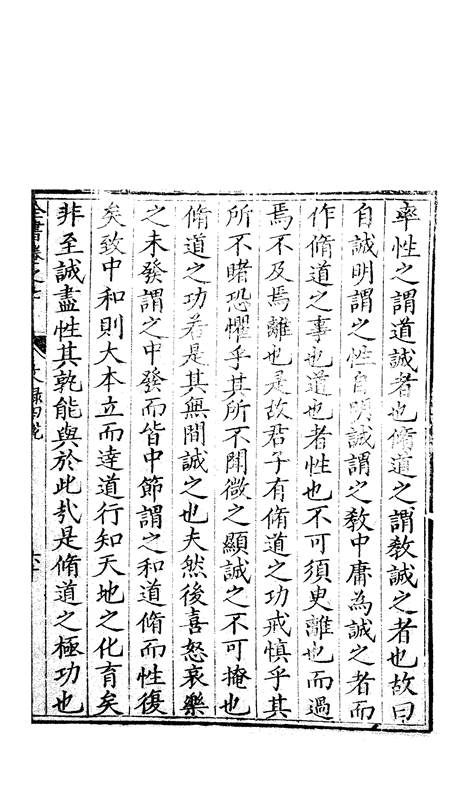 率性之謂道誠者也脩道之謂敎誠之者也故曰
自誠明謂之性自明誠謂之敎中庸為誠之者而
作脩道之事也道也者性也不可須臾離也而過
焉不及焉離也是故君子有脩道之功戒慎乎其
所不睹恐懼乎其所不聞微之顯誠之不可掩也
脩道之功若是其無間誠之也夫然後喜怒哀樂
之未發謂之中發而皆中節謂之和道脩而性復
矣致中和則大本立而達道行知天地之化育矣
非至誠盡性其孰能與於此㢤是脩道之極功也
全書卷之七 文録四說